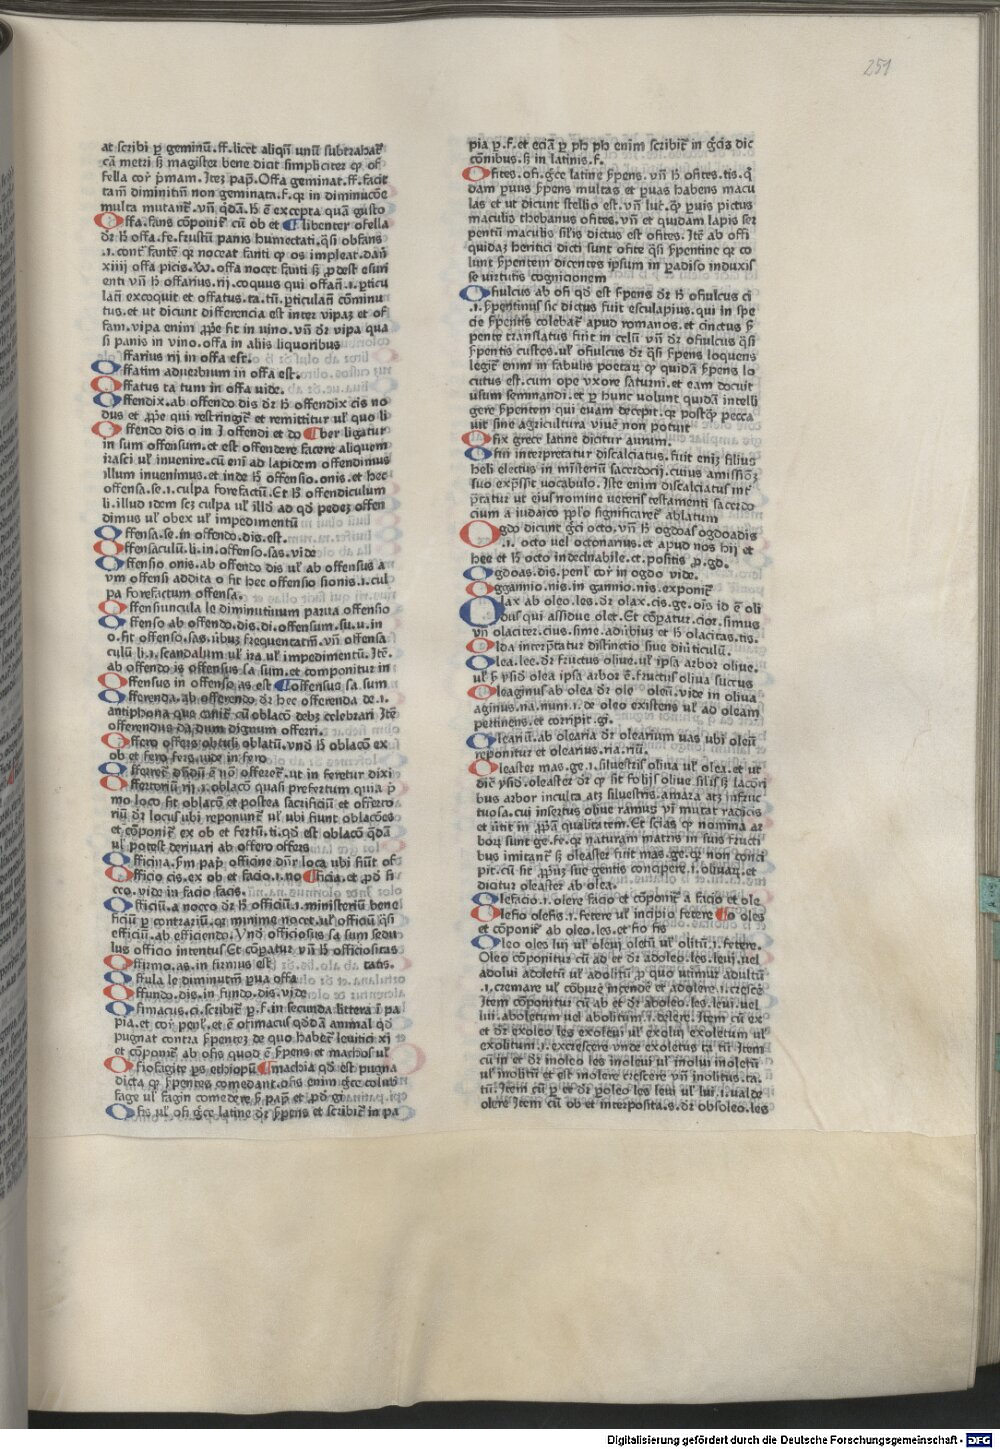 251
at scribi ꝑ geminū.ff.licet aliqñ unū subtrahať
cā metri sꝫ magister bene dicit simpliciter ꝙ of
fella coꝛ p̄mam. Iteꝫ pap̄. Offa geminat.ff.facit
tam̄ diminitiū non geminata.f.qꝛ in diminucōe
multa mutanť. vñ q̄dā. hꝫ ē excepta quā gusto
Offa.fans cōponiť cū ob et ¶ libenter ofella
dꝛ h̄ offa.fe.frustū panis humectati.q̄si obfans
.i.conť fantē qꝛ noceat fanti ꝙ os impleat.dañ
xiiij offa picis.Xv.offa nocet fanti sꝫ ꝓdest esuri
enti vñ h̄ offarius.rij.coquus qui offañ.i.ꝑticu
lañ excoquit et offatus.ta.tū.ꝑticulañ cōminu
tus.et ut dicunt differencia est inter vipaꝫ et of
fam.vipa enim ꝓpe fit in uino.vñ dꝛ vipa qua
si panis in vino.offa in aliis liquoribus
Offarius rij in offa est.
Offatim aduerbium in offa est.
Offatus ta tum in offa uide.
Offendix.ab offendo dis dꝛ h̄ offendix cis no
dus et ꝓpe qui restringiť et remittitur ul̄ quo li
Offendo dis o in I offendi et do ¶ ber ligatur
in sum offensum.et est offendere facere aliquem
irasci ul̄ inuenire.cū enī ad lapidem offendimus
illum inuenimus.et inde h̄ offensio.onis.et hec
offensa.se.i.culpa forefactū.Et h̄ offendiculum
li.illud idem scꝫ culpa ul̄ illđ ad qđ pedeꝫ offen
dimus ul̄ obex ul̄ impedimentū
Offensa.se.in offendo.dis.est.
Offensaculū.li.in.offenso.sas.vide
Offensio onis.ab offendo dis ul̄ ab offensus a
vm offensi addita o fit hec offensio sionis.i.cul
pa forefactum offensa.
Offensiuncula le diminutiuum parua offensio
Offenso ab offendo.dis.di.offensum.su.u.in
o.fit offenso.sas.ūbuꝫ frequentatm̄.vñ offensa
culū li.i.scandalum ul̄ ira ul̄ impedimentū.Itē.
ab offendo is offensus sa sum.et componitur in
Offensus in offenso as est ¶ offensus sa.sum
Offerenda.ab offerendo dꝛ hec offerenda de.i.
antiphona que caniť cū oblacō debꝫ celebrari Itē
offerendus da dum dignum offerri.
Offero offers obtuli oblatū.vnđ h̄ oblacō ex
ob et fero fers.uide in fero
Offerreť dn̄dū ē nō offereť.ut in feretur dixi
Offertoriū rij.i.oblacō quasi prefertum quia p̄
mo loco fit oblacō et postea sacrificiū et offerto
riū dꝛ locus ubi reponunť ul̄ ubi fiunt oblacōes
et cōponiť ex ob et fertū.ti.qđ est oblacō q̄dā
ul̄ potest deriuari ab offero offers
Officina.p̄m pap̄ officine dn̄r loca ubi fiūt of
Officio cis.ex ob et facio.i.no ¶ ficia.et ꝓđ fi
cco.vide in facio facis.
Officiū.a noceo dꝛ h̄ officiū.i.ministeriū bene
ficiū ꝑ contrariū.qꝛ minime nocet.ul̄ officiū q̄si
efficiū.ab efficiendo.Vnđ officiosus sa sum sedu
lus officio intentus Et cōpaťur vñ h̄ officiositas
Offirmo.as.in firmus est ¶ tatis.
Offula le diminutm̄ ꝑua offa
Offundo.dis.in fundo.dis.vide
Ofimacus.ci.scribiť ꝑ.f.in secunda littera i pa
pia.et coꝛ penl̄.et ē ofimacus qđdā animal qđ
pugnat contra s̄penteꝫ de quo habeť leuitici xj
et cōponiť ab ofis quod ē s̄pens et machos ul̄
Ofiofagite ꝑs ethiopū ¶ machia qđ est pugna
dicta ꝙ s̄pentes comedant.ofis enim ḡce colub̄
fage ul̄ fagin comedere s̄ pap̄ et ꝓđ gi
Ofis ul̄ ofi ḡce latine dꝛ s̄pens et scribiť in pa
pia ꝑ.f.et eciā ꝑ ph ph enim scribiť in ḡciꝫ dic
cōnibus.sꝫ in latinis.f.
Ofites.ofi.ḡce latine s̄pens.vñ h̄ ofites.tis.q̄
dam ꝑuus s̄pens multas et ꝑuas habens macu
las et ut dicunt stellio est.vñ luč.ꝙ ꝑuis pictus
maculis thebanus ofites.vñ et quidam lapis ser
pentū maculis sil̄is dictus est ofites.Itē ab offi
quidaꝫ heritici dicti sunt ofite q̄si s̄pentine qꝛ co
lunt s̄pentem dicentes ipsum in ꝑadiso induxis
se virtutis cognicionem
Ofiulcus ab ofi qđ est s̄pens dꝛ h̄ ofiulcus ci
.i.s̄pentinus sic dictus fuit esculapius.qui in spe
cie s̄pentis colebať apud romanos.et cinctus s̄
pente translatus fuit in celū.vñ dꝛ ofiulcus q̄si
s̄pentis custos.ul̄ ofiulcus dꝛ q̄si s̄pens loquens
legiť enim in fabulis poetaꝝ ꝙ quidā s̄pens lo
cutus est.cum ope vxore saturni.et eam docuit
usum seminandi.et ꝑ hunc volunt quidā intelli
gere s̄pentem qui euam decepit.qꝛ postꝙ̄ pecca
uit sine agricultura viuē non potuit
Ofix grece latine dicitur aurum.
Ofni interpretatur discalciatus.fuit eniꝫ filius
heli electus in mīsteriū sacerdocij.cuius amissiōꝫ
suo exp̄ssit vocabulo.Iste enim discalciatus int̄
p̄tatur ut eius nomine veteris testamenti sacerdo
cium a iudaico ꝓplo significareť ablatum
Ogdo dicunt ḡci octo.vñ h̄ ogdoas ogdoadis
.i. octo uel octonarius.et apud nos hij et
hee et h̄ octo indeclinabile.et positis ꝓ.gd.
Ogdoas.dis.penl̄ coꝛ in ogdo vide.
Oggannio.nis.in gannio.nis.exponiť
Olax ab oleo.les.dꝛ olax.cis.ge.oīs id ē oli
dus qui assidue olet.Et cōpatur.cior.simus
vñ olaciter.cius.sime.aduibiuꝫ et h̄ olacitas.tis.
Olda interp̄tatur distinctio siue diūticulū.
Olea.lee.dꝛ fructus oliue.ul̄ ipsa arbor oliue.
ul̄ s̄ ysiđ olea ipsa arbor ē.fructus oliua succus
Oleaginus ab olea dꝛ ole oleū.vide in oliua
aginus.na.num.i.de oleo existens ul̄ ad oleam
pertinens.et corripit.gi.
Olearium.ab olearia dꝛ olearium uas ubi oleū
reponitur et olearius.na.riū.
Oleaster mas.ge.i.siluestris oliua ul̄ olea.et ut
diť ysiđ.oleaster dꝛ ꝙ sit folijs oliue silis sꝫ lacori
bus arbor inculta atꝫ siluestris.amara atꝫ infruc
tuosa.cui insertus oliue ramus vi mutat radicis
et ūtit in ꝓp̄ā qualitatem.Et scias ꝙ nomina ar
boꝝ sunt ge.fe.qꝛ naturam matris in suis fructi
bus imitanť sꝫ oleaster fuit mas.ge.qꝛ non conci
pit.cū sit ꝓp̄uꝫ sue gentis concipere.i.oliuaꝫ.et
dicitur oleaster ab olea.
Olefacio.i.olere facio et cōponiť a facio et ole
Olefio olefis.i.fetere ul̄ incipio fetere ¶ o oles
et cōponiť ab oleo.les.et fio fis
Oleo oles lui ul̄ oleui oletū ul̄ olitū.i.fetere.
Oleo cōponitur cū ad et dꝛ adoleo.les.leui.uel
adolui adoletū ul̄ adolitū ꝓ quo utimur adultū
.i.cremare ul̄ cōburē incendē et adolere.i.crescē
Item cōponitur cū ab et dꝛ aboleo.les.leui.uel
lui.aboletum uel abolitum.i.delere.Item cū ex
et dꝛ exoleo les exoleui ul̄ exolui exoletum ul̄
exolitum.i.excrescere vnde exoletus ta tū Item
cū in et dꝛ inoleo les inoleui ul̄ inolui inoletū
ul̄ inolitū et est inolere crescere vñ inolitus.ta.
tū.Item cū ꝑ et dꝛ ꝑoleo les leui ul̄ lui.i.ualde
olere Item cū ob et interposita.s.dꝛ obsoleo.les
Digitalisierung gefördert durch die Deutsche Forschungsgemeinschaft - DFG